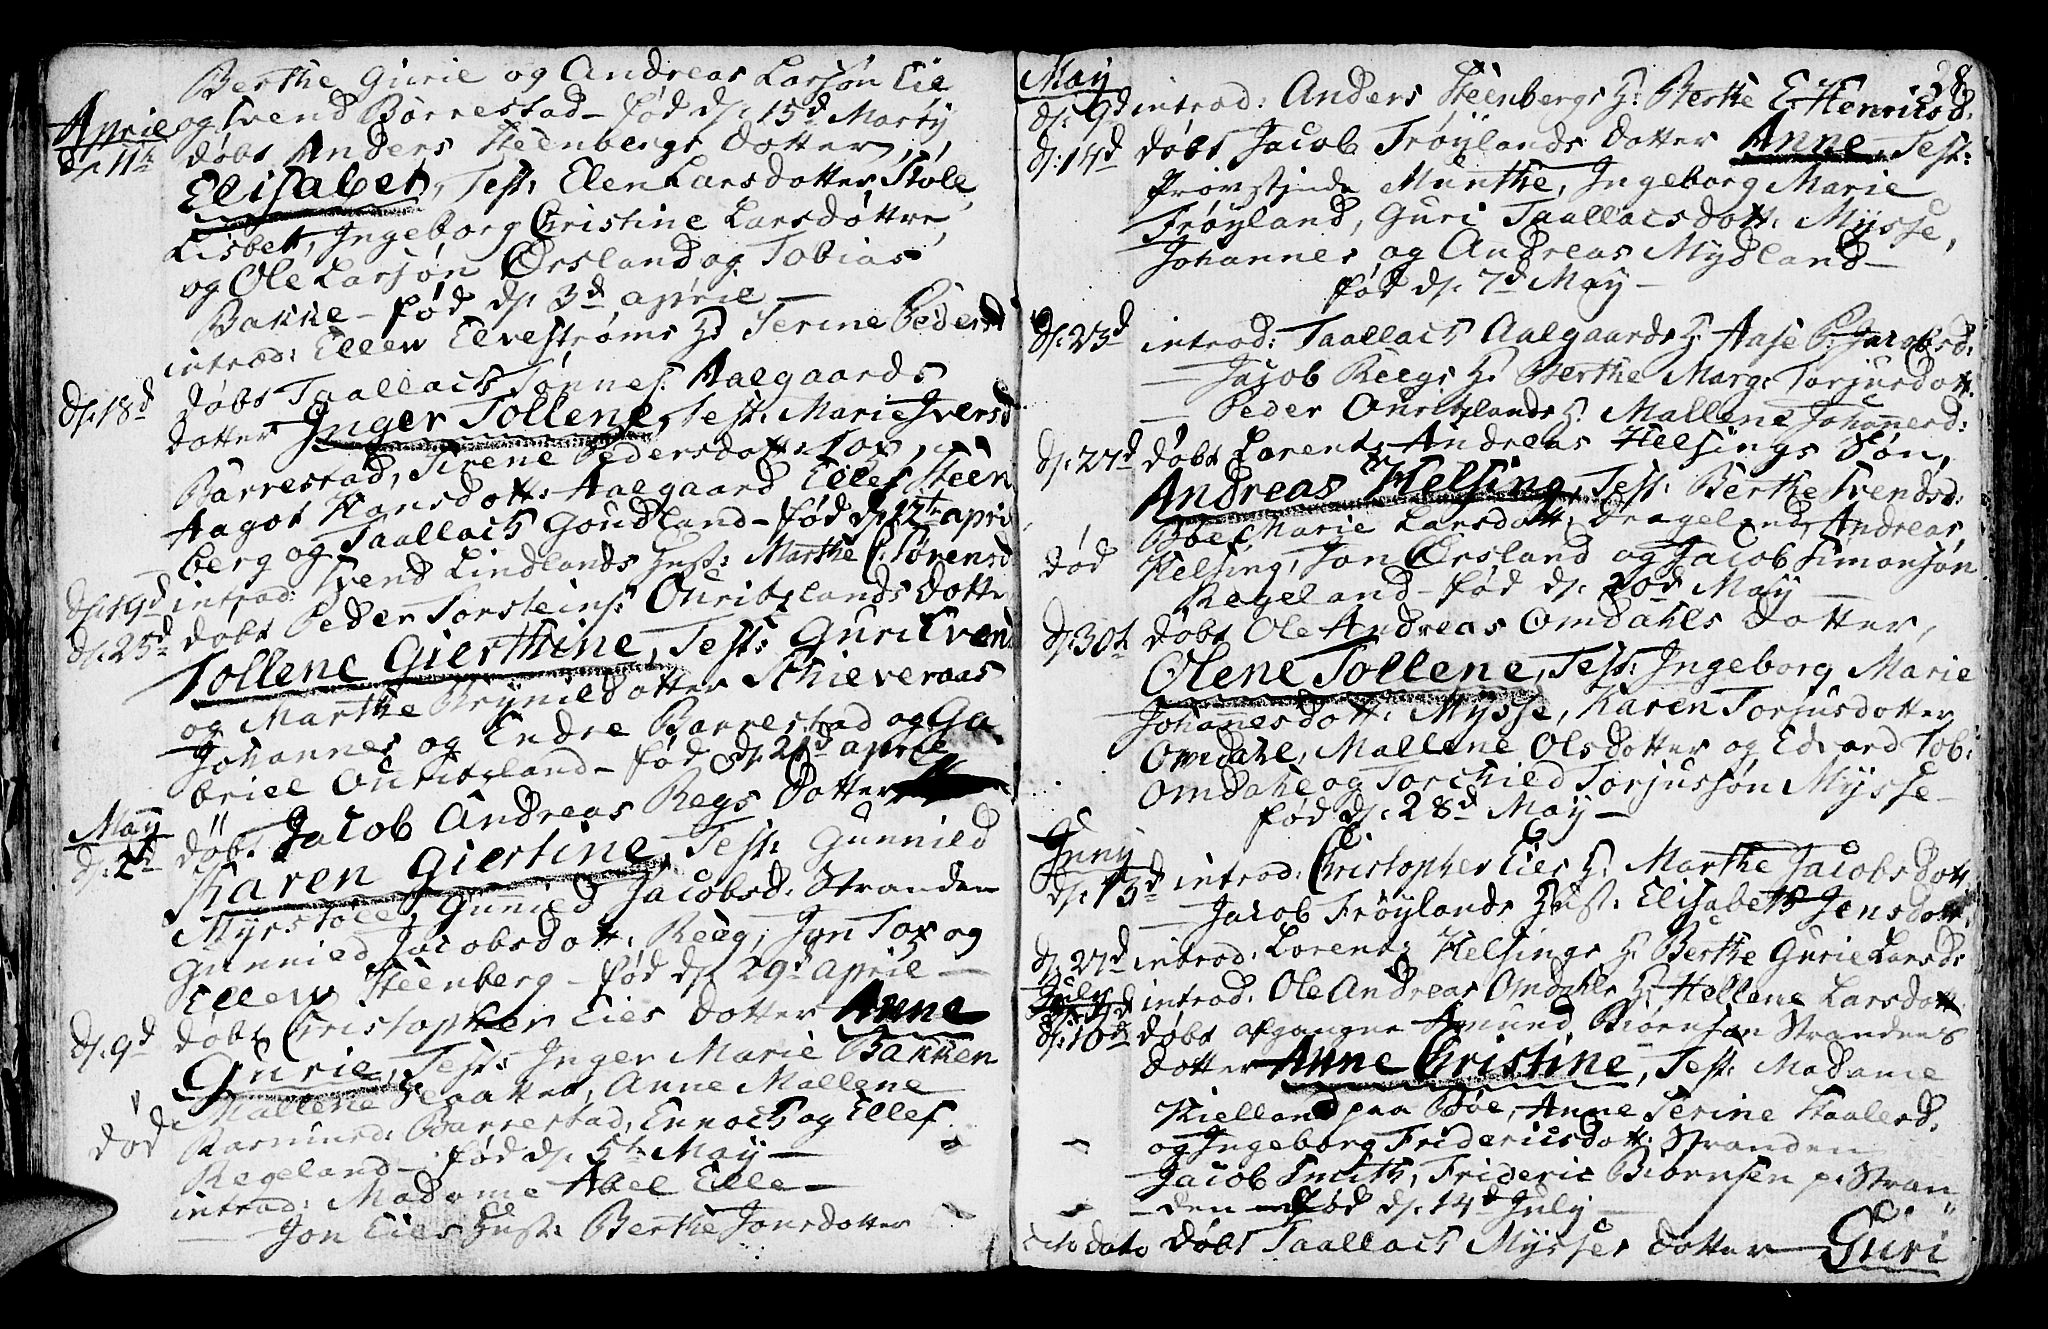 Berthe Gurie og Andreas Larsøn Eie
og Svend Barrestad - fød d. 15d Marty
Aprile
d. 11te døbt Anders Steenbergs Dotter,
Elisabet, Test: Elen Larsdotter Støle
Lisbet, Ingeborg Christine Larsdøttre,
og Ole Larsøn Ørsland og Tobias
Bakke - fød d. 3d aprile -
introd: Ellew Elvestrøms H: Serine Pedersd
d. 18d døbt Taallach Tønnes: Aalgaards
dotter Inger Tollene, Test: Marie Iversd
Barrestad, Sirene Pedersdott: Tox,
Aagot Hansdott: Aalgaard Ellef Steen
berg og Taallach Goudland - fød d. 12te april
d. 19d introd: Svend Lindlands Hust: Marthe C: Sørensd
d. 25d døbt Peder Torsteins: Ouriglands Dotter
Tollene Gierthine, Test: Guri Svend
og Marthe Brynildotter Skieveraas
Johannes og Endre Barrestad og Ga-
briel Ourigland - fød d. 21d aprile
May
d. 2d døbt Jacob Andreas Regs Dotter
Karen Giertine, Test: Gunnild
Myrstøel, Gunild Jacobsd: Stranden
Gunnild Jacobsdott: Reeg, Jon Tox og
Ellew Steenberg - fød d. 29d aprile -
d. 9d døbt Christopher Eies Dotter Anne
Gurie, Test: Inger Marie Bakken
Mallene Haaket, Anne Mallene
død Rasmusd: Barrestad, Ennoch og Ellef
Regeland - fød d. 5te May -
introd: Madame Abel Elle -
- Jon Eies Hust: Berthe Jonsdotter
28
May
d. 9d introd: Anders Steenbergs H: Berthe E. Henricsd:
d. 14d døbt Jacob Frøylands Dotter Anne, Test:
Prøvstinde Munthe, Ingeborg Marie
Frøyland, Guri Taallacsdott: Mysse,
Johannes og Andreas Mydland -
fød d. 7d May -
d. 23d introd: Taallach Aalgaards H: Aase P: Jacobsd:
- Jacob Reegs H: Berthe Marg: Torjusdott
- Peder Ouriglands H: Mallene Johannesd:
d. 27d døbt Lorents Andreas Helsings Søn,
Andreas Helsing, Test: Berthe Svendsd:
Bøe, Marie Larsdott: Drageland, Andreas
død Helsing, Jon Ørsland og Jacob Simonsøn
Regeland - fød d. 20d May -
d. 30te døbt Ole Andreas Omdahls Dotter,
Olene Tollene, Test: Ingeborg Marie
Johanesdott: Mysse, Karen Torjusdotter
Omdahl, Mallene Olsdotter og Edvard Tob:
Omdahl og Torchild Torjussøn Mysse -
fød d. 28d May -
Juny
d. 13d introd: Christopher Eies H: Marthe Jacobsdott
- Jacob Frøylands Hust: Elisabeth Jensdott:
d. 27d introd: Lorents Helsings H: Berthe Gurie Larsd:
July
introd: Ole Andreas Omdahls H: Hellene Larsdott
d. 18d døbt afgangne Amund Biørnsøn Strandens
dotter Anne Christine, Test: Madame
Kielland paa Bøe, Anne Serine Staalesd.
og Ingeborg Fridericsdott: Stranden
Jacob Smith, Frideric Biørnsen p: Stran-
den - fød d. 14d July -
dito dato døbt Taallach Mysses Dotter - Guri